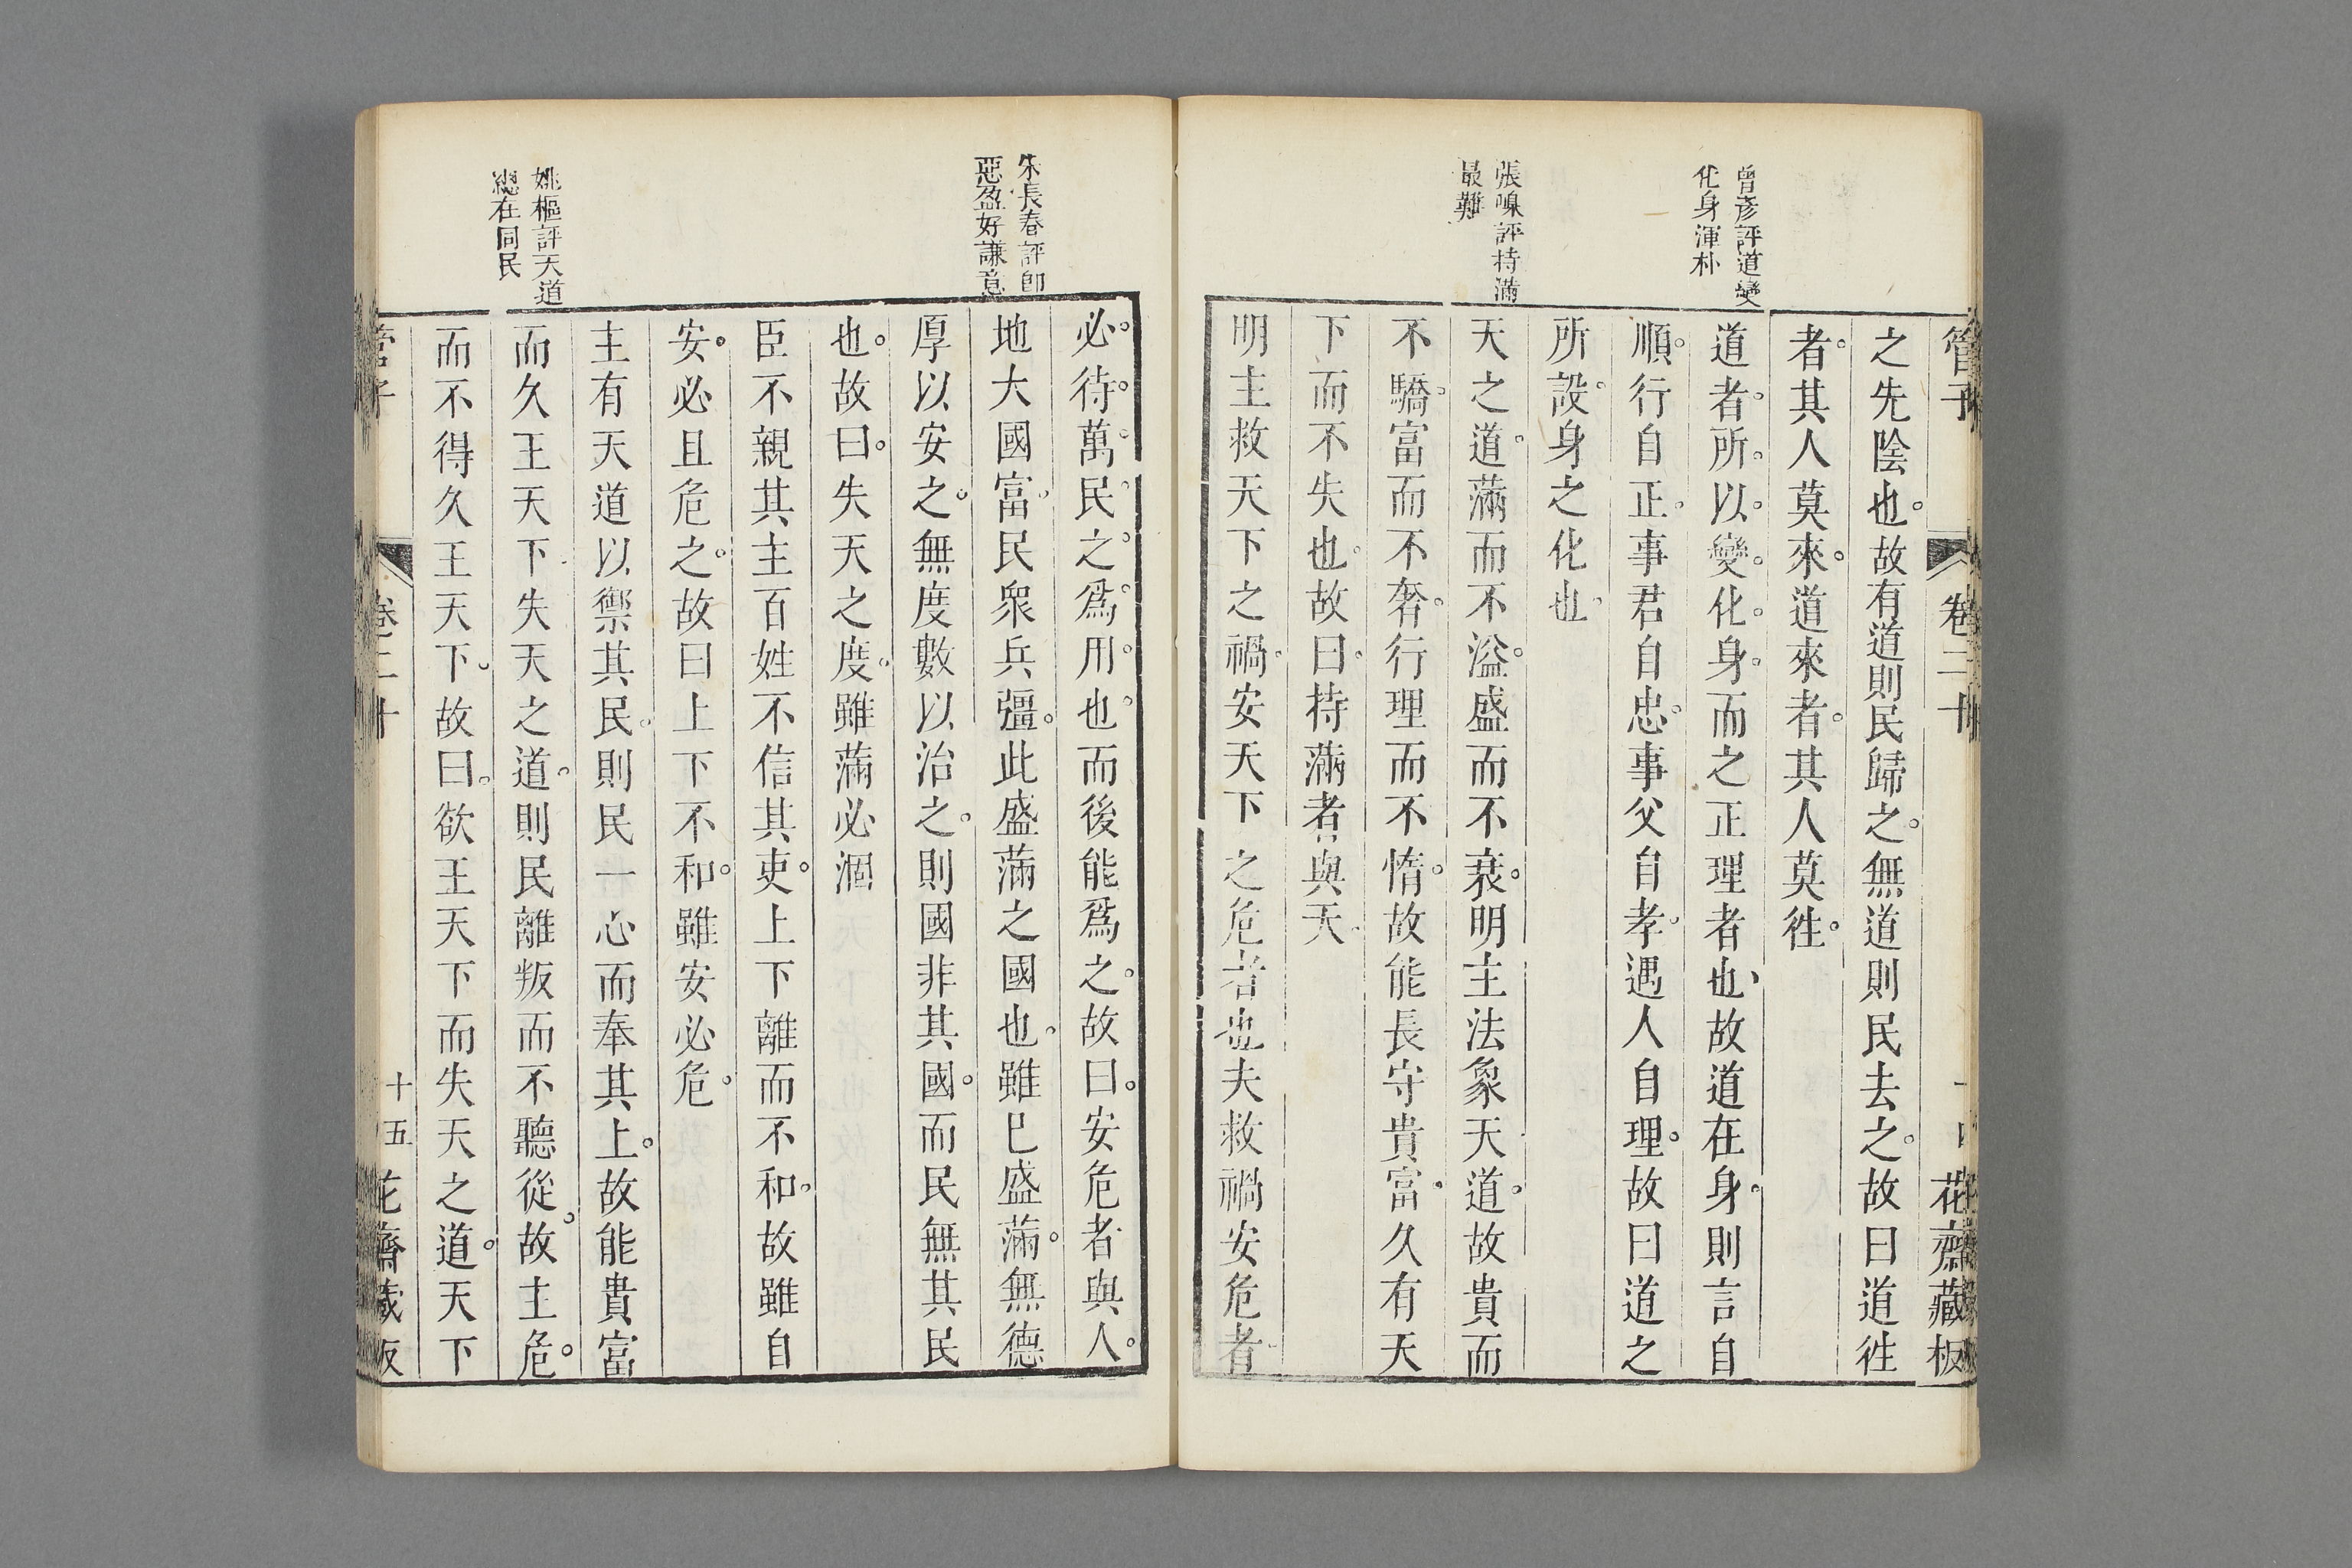 管子
卷二十
花齋藏板
之先陰也故有道則民歸之無道則民去之故曰道徃
者其人莫來道來者其人莫徃
曾彥評道變
化身渾朴
道者所以變化身而之正理者也故道在身則言自
順行自正事君自忠事父自孝遇人自理故曰道之
所設身之化也
張嵲評持滿
最難
天之道滿而不溢盛而不衰明主法象天道故貴而
不驕富而不奢行理而不惰故能長守貴富久有天
下而不失也故曰持滿者與天
明主救天下之禍安天下之危者也夫救禍安危者
必待萬民之爲用也而後能爲之故曰安危者與人
朱長春評卽
惡盈好謙意
地大國富民衆兵彊此盛滿之國也雖已盛滿無德
厚以安之無度數以治之則國非其國而民無其民
也故曰失天之度雖滿必涸
臣不親其主百姓不信其吏上下離而不和故雖自
安必且危之故曰上下不和雖安必危
主有天道以禦其民則民一心而奉其上故能貴富
姚樞評天道
總在同民
而久王天下失天之道則民離叛而不聽從故主危
而不得久王天下故曰欲王天下而失天之道天下
管子
卷二十
十五
花齋藏板